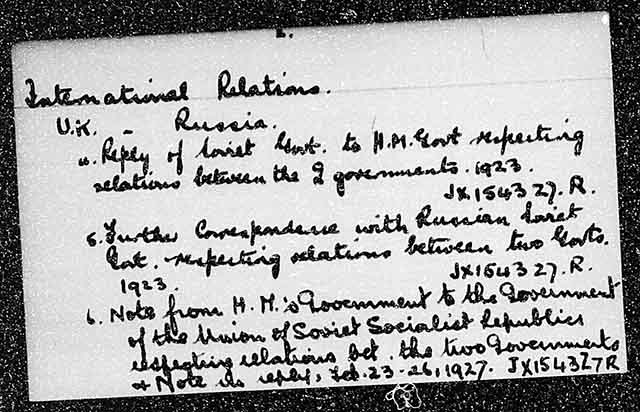 2.
International Relations.
U.K. - Russia.
4. Reply of Soviet Govt. to H.M. Govt respecting
relations between the 2 governments. 1923.
JX1543 Z7. R.
5. Further Correspondence with Russian Soviet
Govt. respecting relations between two Govts.
1923. JX1543 Z7. R.
6. Note from H.M.'s Government to the Government
of the Union of Soviet Socialist Republics
respecting relations bet. the two Governments
& Note in reply, Feb. 23-26, 1927. JX1543Z7R